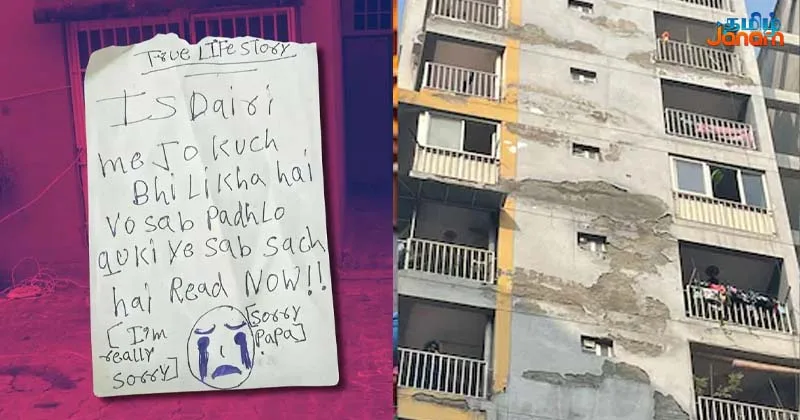 True LIFE STORY
IS Dairi
me Jo kuch
Bhi Likha hai
Vo sab Padh Lo
quki Ye sab sach
hai Read NOW!!
[I'm
really
sorry]
[Sorry
Papa]
தமிழ்
Janam